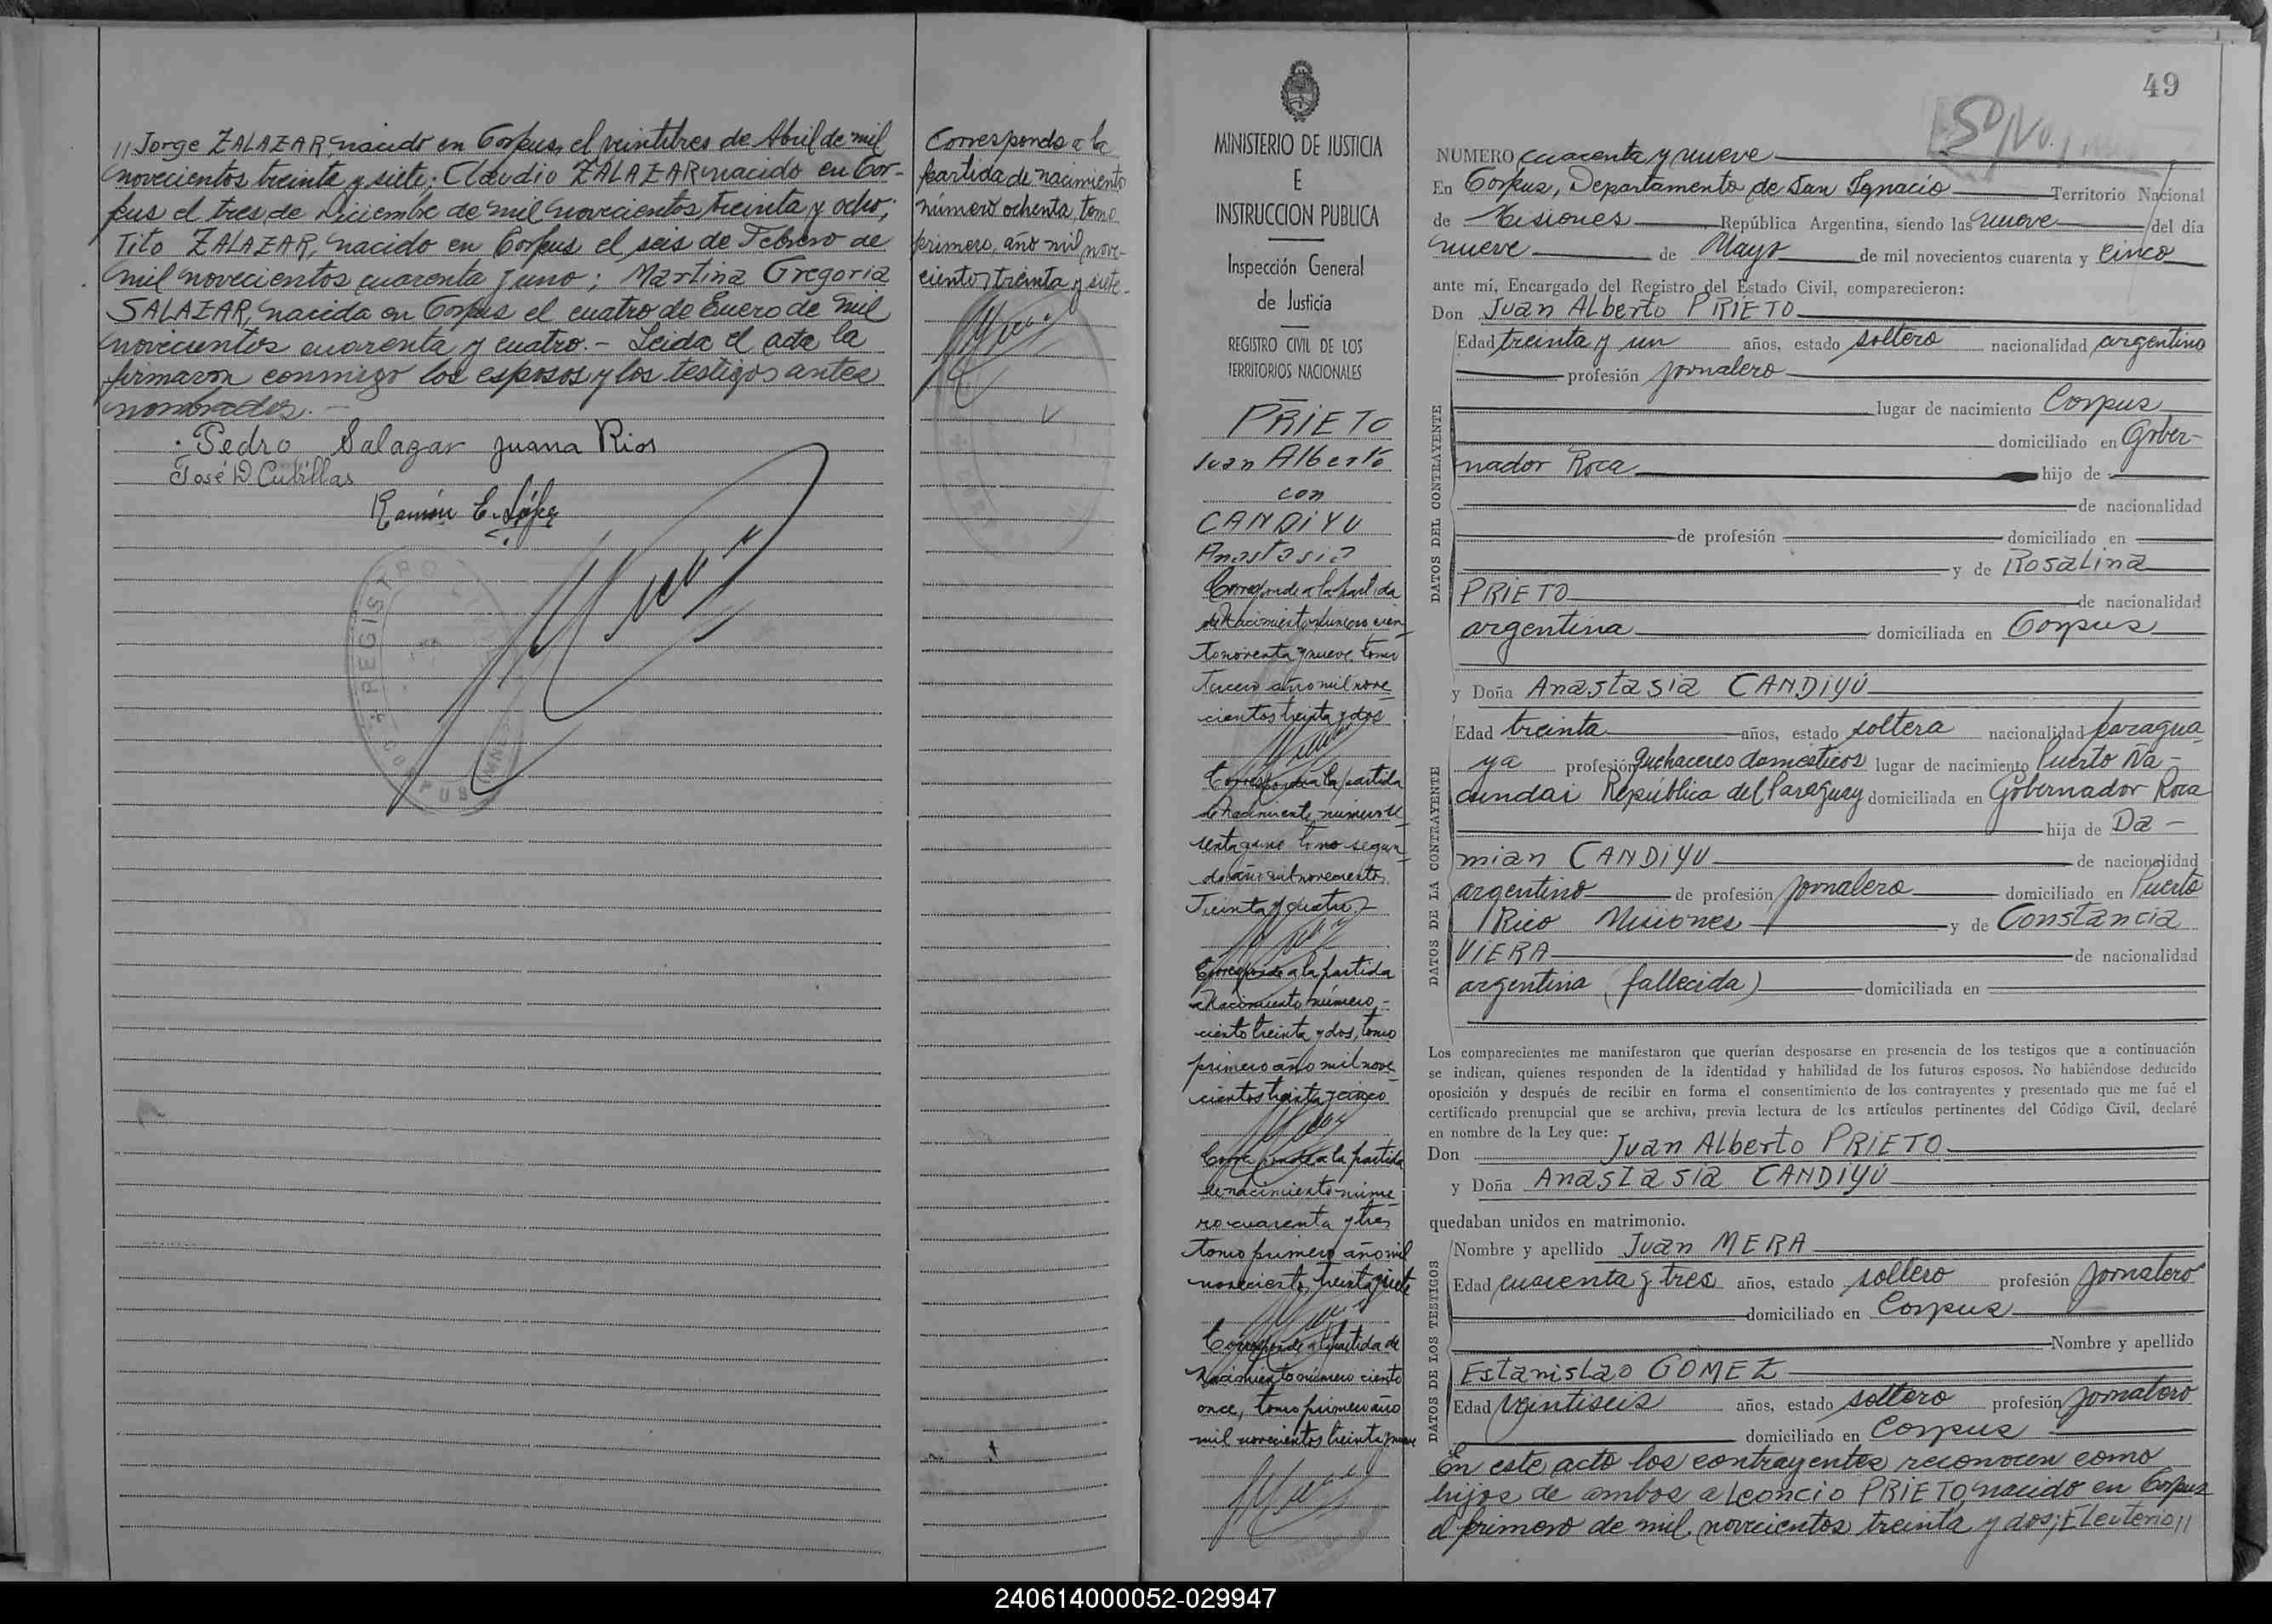 // Jorge ZALAZAR, nacido en Corpus, el veintitres de Abril de mil
novecientos treinta y siete; Claudio ZALAZAR nacido en Cor-
pus el tres de Diciembre de mil novecientos treinta y ocho;
Tito ZALAZAR, nacido en Corpus el seis de Febrero de
mil novecientos cuarenta y uno; Martina Gregoria
SALAZAR, nacida en Corpus el cuatro de Enero de mil
novecientos cuarenta y cuatro.- Leida el acta la
firmaron conmigo los esposos y los testigos antes
nombrados.-
Pedro Salazar Juana Rios
José D. Cutillas
Ramón E. López
REGISTRO
CORPUS
Corresponde a la
partida de nacimiento
número ochenta, tomo
primero, año mil nove-
cientos treinta y siete.
MINISTERIO DE JUSTICIA
E
INSTRUCCION PUBLICA
Inspección General
de Justicia
REGISTRO CIVIL DE LOS
TERRITORIOS NACIONALES
PRIETO
Juan Alberto
con
CANDIYU
Anastasia
Corresponde a la partida
de Nacimiento número cien-
to noventa y nueve, tomo
Tercero año mil nove
cientos treinta y dos
Corresponde a la partida
de Nacimiento número se-
senta y uno tomo segun-
do año mil novecientos
Treinta y cuatro
Corresponde a la partida
de Nacimiento número-
ciento treinta y dos, tomo
primero año mil nove
cientos treinta y cinco
Corresponde a la partida
de nacimiento núme-
ro cuarenta y tres
tomo primero año mil
novecientos treinta y siete
Corresponde a la partida de
Nacimiento número ciento
once, tomo primero año
mil novecientos treinta y nueve
49
NUMERO cuarenta y nueve
En Corpus, Departamento de San Ignacio Territorio Nacional
de Misiones República Argentina, siendo las nueve del día
nueve de Mayo de mil novecientos cuarenta y cinco
ante mí, Encargado del Registro del Estado Civil, comparecieron:
Don Juan Alberto PRIETO
DATOS DEL CONTRAYENTE
Edad treinta y un años, estado soltero nacionalidad argentino
profesión jornalero
lugar de nacimiento Corpus
domiciliado en Gober-
nador Roca hijo de
de nacionalidad
de profesión domiciliado en
y de Rosalina
PRIETO de nacionalidad
argentina domiciliada en Corpus
y Doña Anastasia CANDIYÚ
DATOS DE LA CONTRAYENTE
Edad treinta años, estado soltera nacionalidad paragua-
ya profesión quehaceres domésticos lugar de nacimiento Puerto Ña-
cundai República del Paraguay domiciliada en Gobernador Roca
hija de Da-
mian CANDIYU de nacionalidad
argentino de profesión jornalero domiciliado en Puerto
Rico Misiones y de Constancia
VIERA de nacionalidad
argentina (fallecida) domiciliada en
Los comparecientes me manifestaron que querían desposarse en presencia de los testigos que a continuación
se indican, quienes responden de la identidad y habilidad de los futuros esposos. No habiéndose deducido
oposición y después de recibir en forma el consentimiento de los contrayentes y presentado que me fué el
certificado prenupcial que se archiva, previa lectura de los artículos pertinentes del Código Civil, declaré
en nombre de la Ley que:
Don Juan Alberto PRIETO
y Doña Anastasia CANDIYÚ
quedaban unidos en matrimonio.
DATOS DE LOS TESTIGOS
Nombre y apellido Juan MERA
Edad cuarenta y tres años, estado soltero profesión jornalero
domiciliado en Corpus
Nombre y apellido
Estanislao GOMEZ
Edad veintiseis años, estado soltero profesión jornalero
domiciliado en Corpus
En este acto los contrayentes reconocen como
hijos de ambos a Leoncio PRIETO, nacido en Corpus
el primero de mil novecientos treinta y dos; Eleuterio //
240614000052-029947